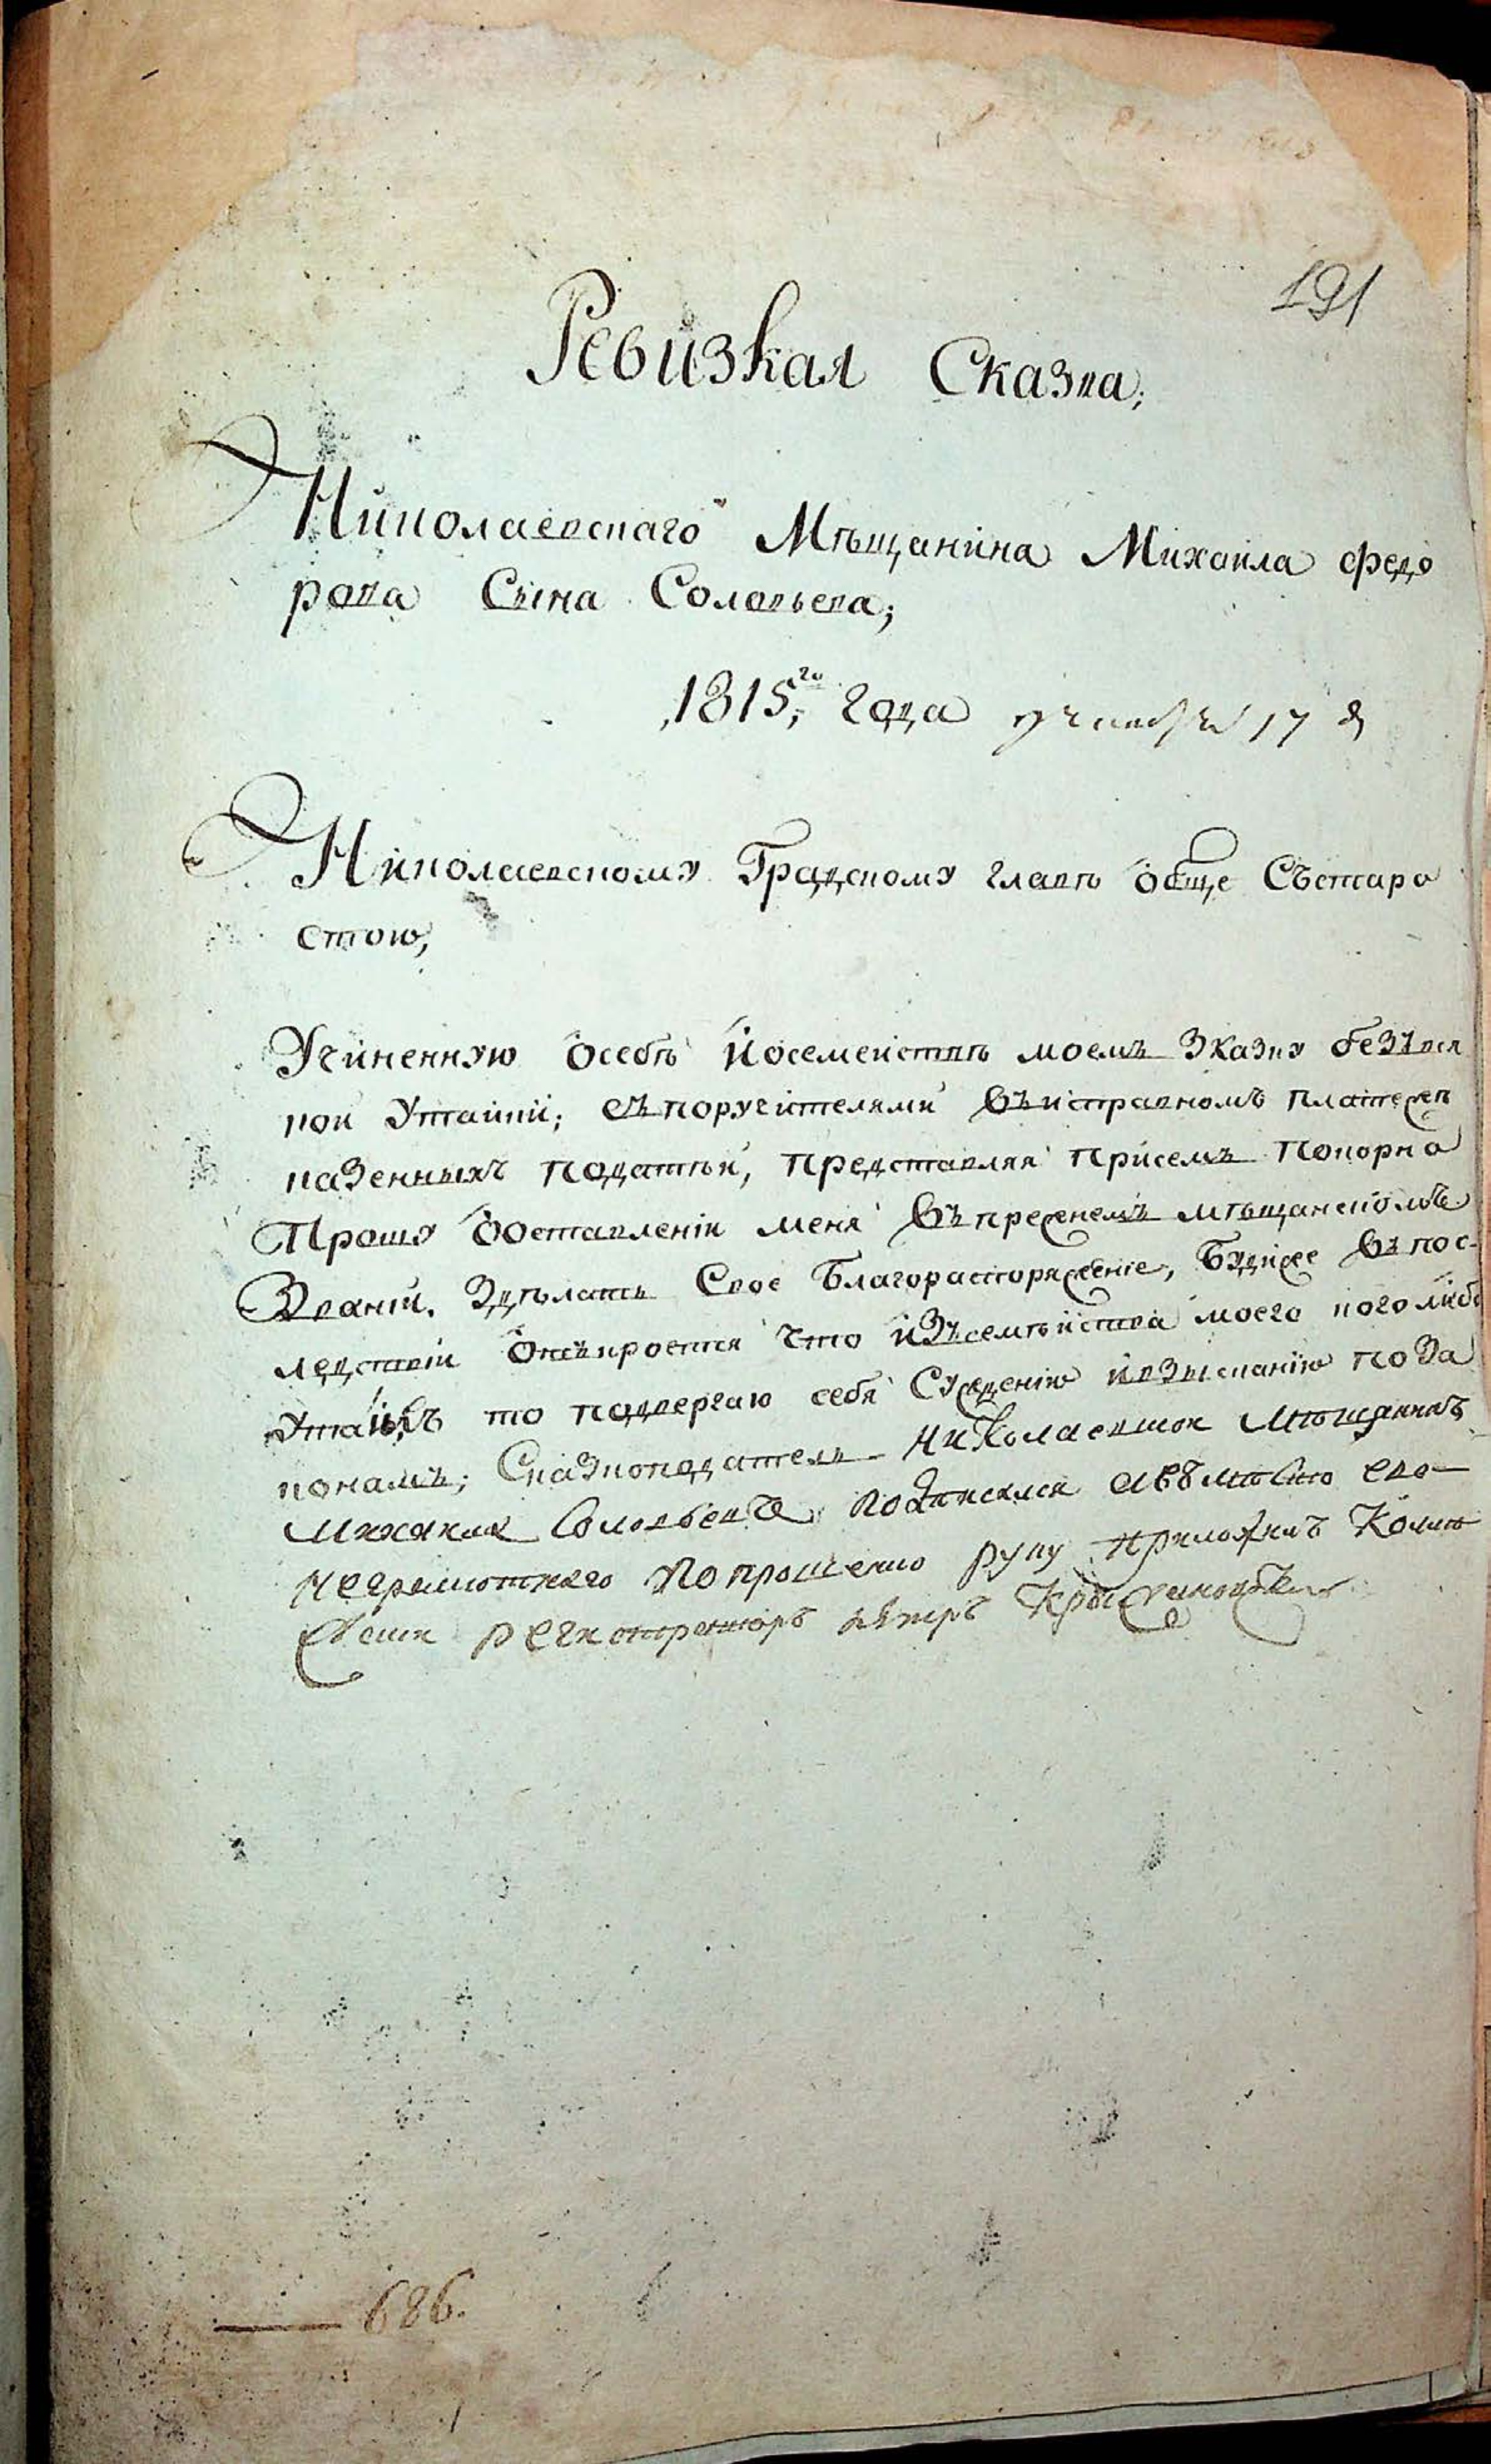 191
Ревизкая Сказка;
Николаевскаго Мѣщанина Михайла Федо
рова Сына Соловьева;
1815,го Года 17
Николаевскому Градскому главѣ обще Състаро
стою,
Учиненную осебѣ йосемействѣ моемъ Зказку безъвся
кои Утайки; съпоручителями въисправномъ платежѣ
казенныхъ податѣй, представляя присемъ Покорно
Прошу обоставленіи меня въпрежнемъ мѣщанскомъ
Званіи. Здѣлать Свое Благораспоряжение, Будиже въпос-
ледствіи откъкроется что изъсемѣйства моего коголибо
Утаилъ то подвергаю себя Суждению ивзысканію поза
конамъ; Сказкоподатель Николаевшои Мющанинъ
Михаила Соловьевъ авомѣсто ево
неграмотнаго Попрошению руку приложилъ
регистраторъ
686.